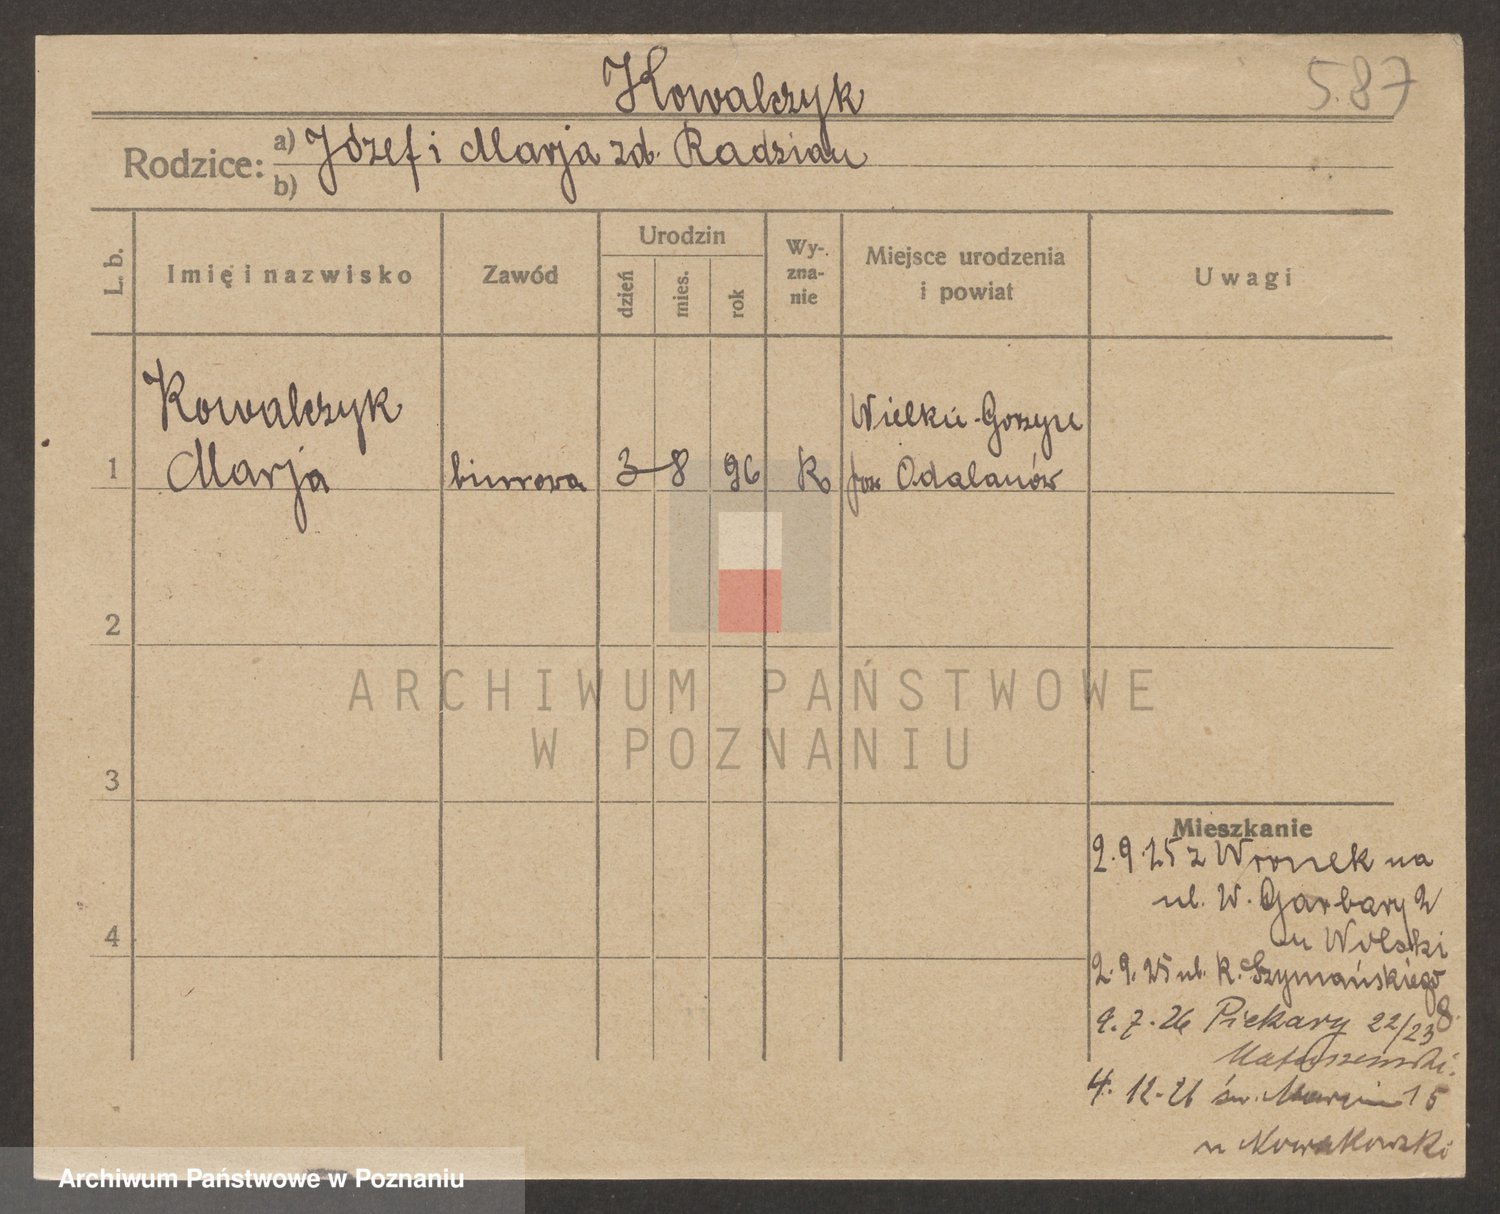 Kowalczyk
587
Rodzice:
a) Józef i Marja zd. Radziau
b)
L. b.
Imię i nazwisko
Zawód
Urodzin
dzień
mies.
rok
Wy-
zna-
nie
Miejsce urodzenia
i powiat
Uwagi
Kowalczyk
1 Marja
biurowa
3-8 96
K.
Wielkie-Gorzyce
pow Odalanów
2
3
4
Mieszkanie
2.9.25 z Wronek na
ul. W. Garbary 2
u Wolski
2.9.25 ul. R. Szymańskiego
8.
9.7.26 Piekary 22/23
4.12.26 św. Marcin 15
u Nowakowski
ARCHIWUM PAŃSTWOWE
W POZNANIU
Archiwum Państwowe w Poznaniu